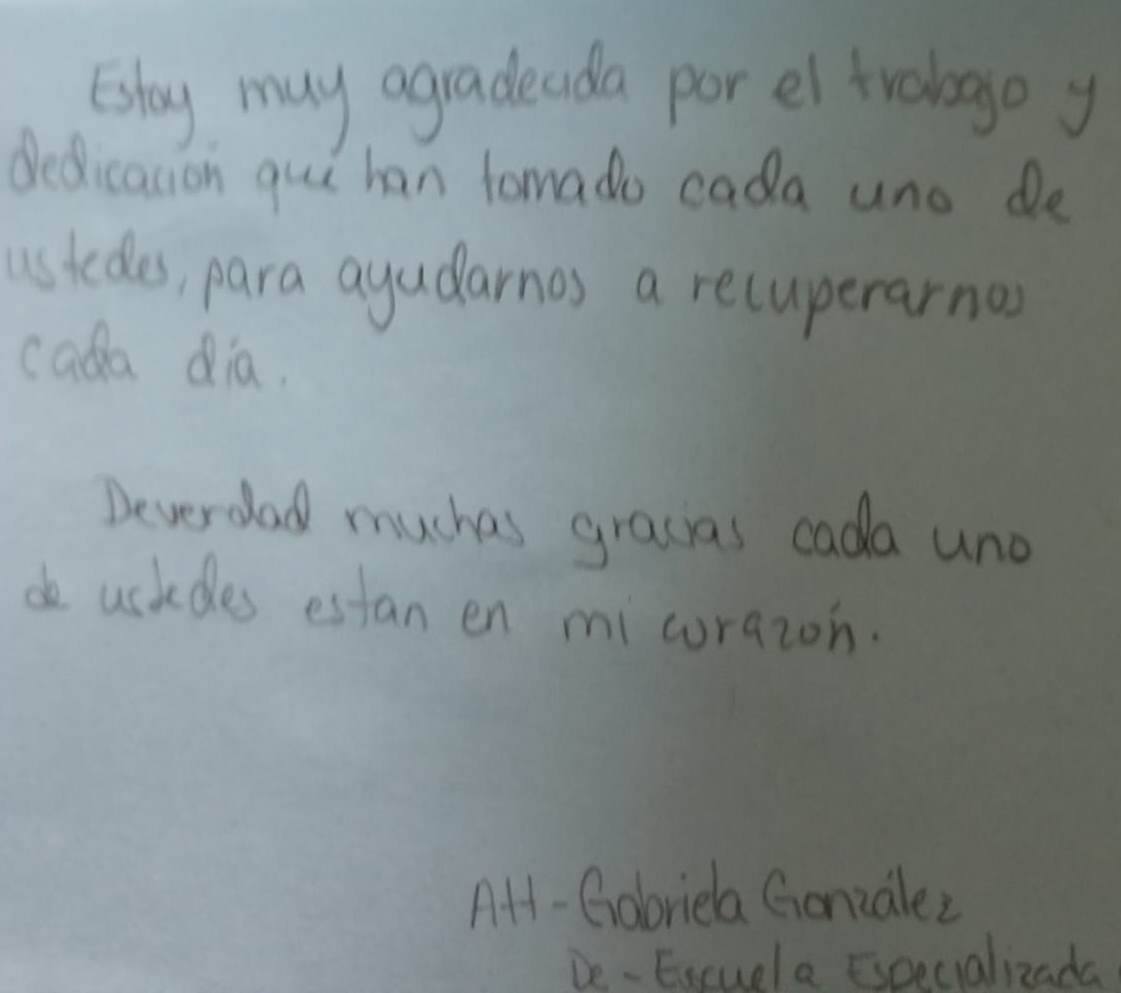 Estoy muy agradecida por el trabajo y
dedicación que han tomado cada uno de
ustedes, para ayudarnos a recuperarnos
cada día.
Deverdad muchas gracias cada uno
de ustedes estan en mi corazón.
Att - Gabriela González
De - Escuela Especializada